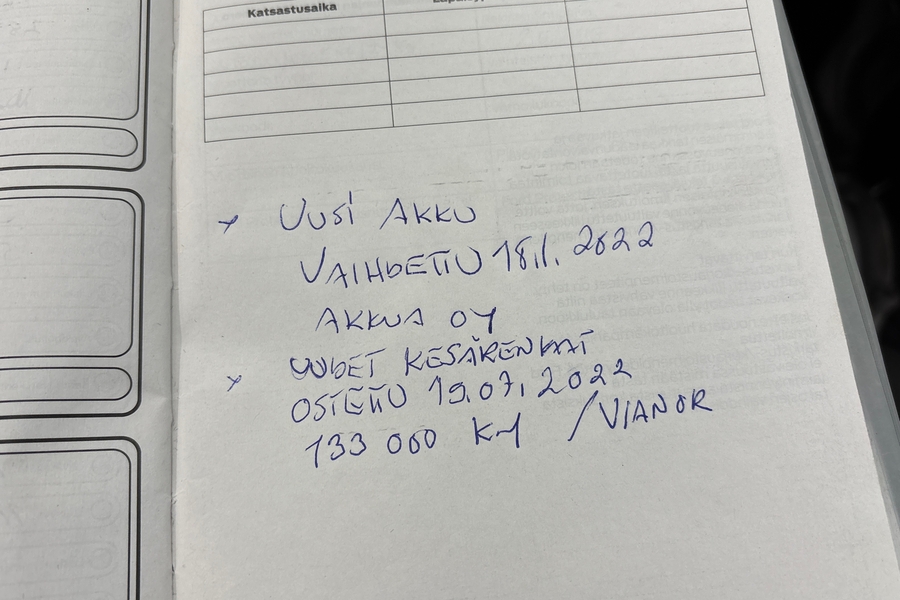 Katsastusaika
× UUSI AKKU
VAIHDETTU 18.1. 2022
AKKUA OY
× UUDET KESÄRENKAAT
OSTETTU 19.07.2022
133 000 KM /VIANOR